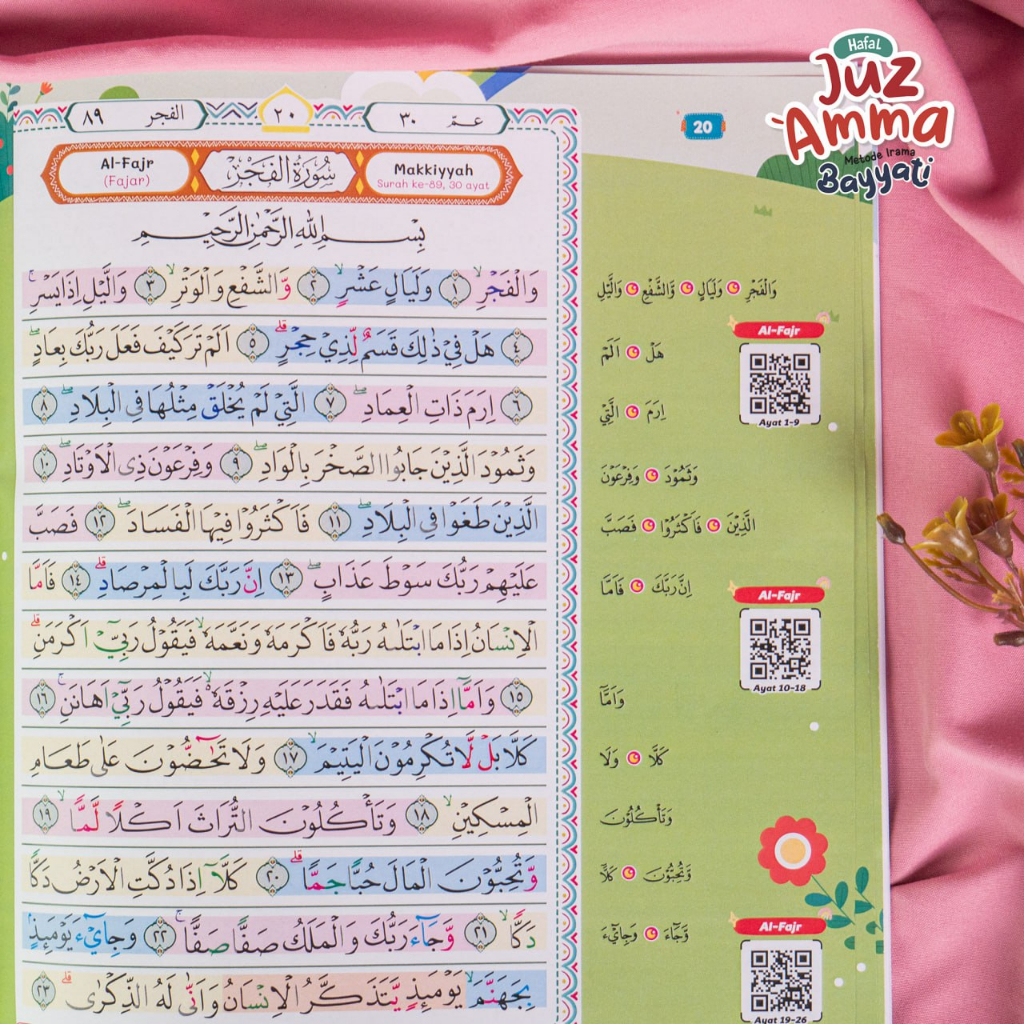 Hafal
Juz
'Amma
Metode Irama
Bayyati
٨٩ الفجر
٢٠
عمّ ٣٠
20
Al-Fajr
(Fajar)
سُوْرَةُ الْفَجْرِ
Makkiyyah
Surah ke-89, 30 ayat
بِسْمِ اللّٰهِ الرَّحْمٰنِ الرَّحِيْمِ
وَالْفَجْرِۙ ١ وَلَيَالٍ عَشْرٍۙ ٢ وَّالشَّفْعِ وَالْوَتْرِۙ ٣ وَالَّيْلِ اِذَا يَسْرِۚ
٤ هَلْ فِيْ ذٰلِكَ قَسَمٌ لِّذِيْ حِجْرٍۗ ٥ اَلَمْ تَرَ كَيْفَ فَعَلَ رَبُّكَ بِعَادٍۖ
٦ اِرَمَ ذَاتِ الْعِمَادِۖ ٧ الَّتِيْ لَمْ يُخْلَقْ مِثْلُهَا فِى الْبِلَادِۖ ٨
وَثَمُوْدَ الَّذِيْنَ جَابُوا الصَّخْرَ بِالْوَادِۖ ٩ وَفِرْعَوْنَ ذِى الْاَوْتَادِۖ ١٠
الَّذِيْنَ طَغَوْا فِى الْبِلَادِۖ ١١ فَاَكْثَرُوْا فِيْهَا الْفَسَادَۖ ١٢ فَصَبَّ
عَلَيْهِمْ رَبُّكَ سَوْطَ عَذَابٍۖ ١٣ اِنَّ رَبَّكَ لَبِالْمِرْصَادِۗ ١٤ فَاَمَّا
الْاِنْسَانُ اِذَا مَا ابْتَلٰىهُ رَبُّهٗ فَاَكْرَمَهٗ وَنَعَّمَهٗۙ فَيَقُوْلُ رَبِّيْٓ اَكْرَمَنِۗ
١٥ وَاَمَّآ اِذَا مَا ابْتَلٰىهُ فَقَدَرَ عَلَيْهِ رِزْقَهٗۙ فَيَقُوْلُ رَبِّيْٓ اَهَانَنِۚ ١٦
كَلَّا بَلْ لَّا تُكْرِمُوْنَ الْيَتِيْمَۙ ١٧ وَلَا تَحٰۤضُّوْنَ عَلٰى طَعَامِ
الْمِسْكِيْنِۙ ١٨ وَتَأْكُلُوْنَ التُّرَاثَ اَكْلًا لَّمًّاۙ ١٩
وَّتُحِبُّوْنَ الْمَالَ حُبًّا جَمًّاۗ ٢٠ كَلَّآ اِذَا دُكَّتِ الْاَرْضُ دَكًّا
دَكًّاۙ ٢١ وَّجَآءَ رَبُّكَ وَالْمَلَكُ صَفًّا صَفًّاۚ ٢٢ وَجِايْۤءَ يَوْمَىِٕذٍ
بِجَهَنَّمَۙ يَوْمَىِٕذٍ يَّتَذَكَّرُ الْاِنْسَانُ وَاَنّٰى لَهُ الذِّكْرٰىۗ ٢٣
وَالْفَجْرِ وَلَيَالٍ وَّالشَّفْعِ وَالَّيْلِ
Al-Fajr
هَلْ اَلَمْ
Ayat 1-9
اِرَمَ الَّتِيْ
وَثَمُوْدَ وَفِرْعَوْنَ
الَّذِيْنَ فَاَكْثَرُوْا فَصَبَّ
اِنَّ رَبَّكَ فَاَمَّا
Al-Fajr
Ayat 10-18
وَاَمَّآ
كَلَّا وَلَا
وَتَأْكُلُوْنَ
وَّتُحِبُّوْنَ كَلَّآ
وَّجَآءَ وَجِايْۤءَ
Al-Fajr
Ayat 19-26